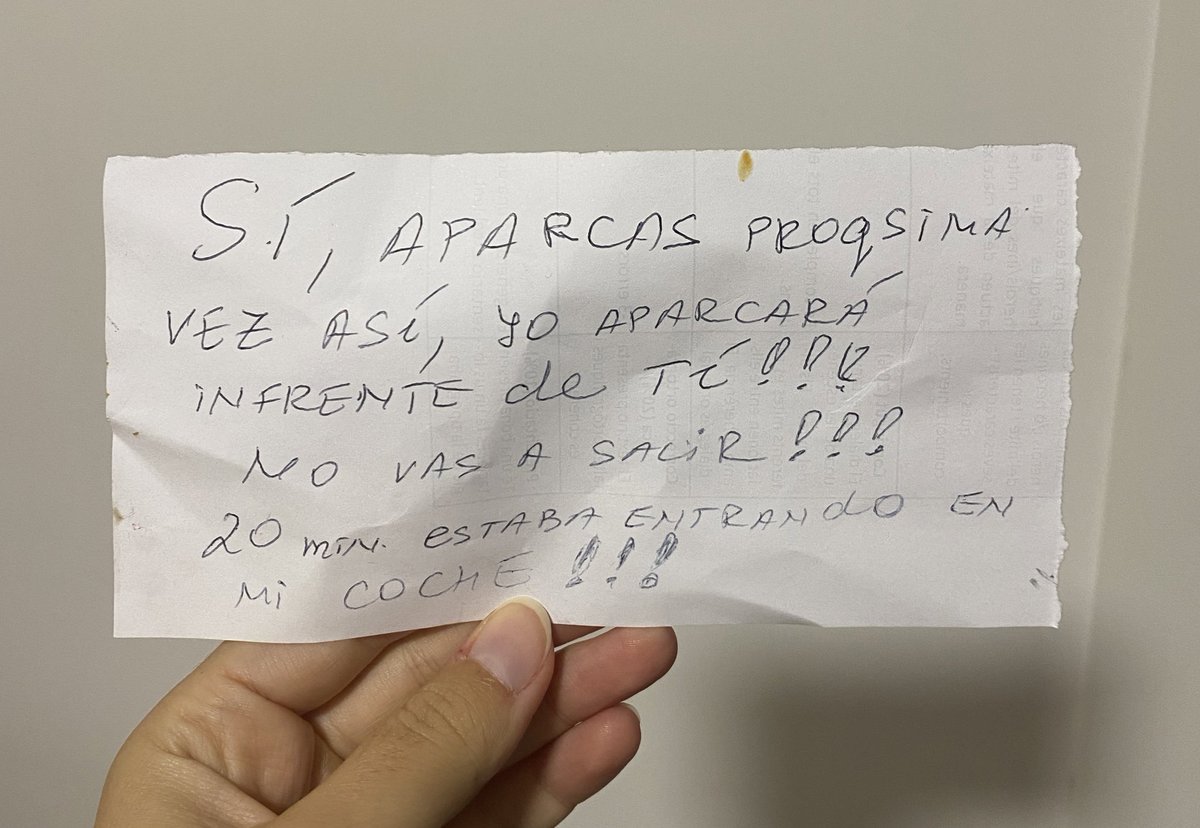 SÍ, APARCAS PROQSIMA
VEZ ASÍ, YO APARCARÁ
INFRENTE de TÍ!!!
NO VAS A SALIR!!!
20 MIN. ESTABA ENTRANdO EN
MI COCHE!!!